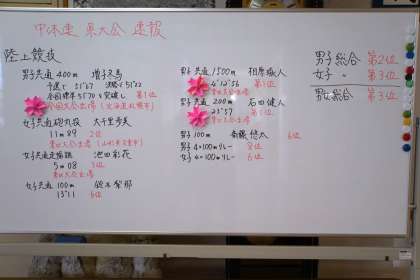 中体連 県大会 速報
陸上競技
男子共通 400m 増子冬馬
予選で 51"67 決勝で 51"22
全国標準 51"70を突破し 第1位
全国大会出場 (北海道札幌市)
女子共通砲丸投 大千里歩美
11m89 2位
東北大会出場 (山形県天童市)
女子共通走幅跳 池田彩花
5m08 3位
東北大会出場
女子共通 100m 鈴木梨那
13"11 6位
男子共通 1500m 相原
4'12"56 第1位
東北大会出場
男子共通 200m 石田健人
23"57 第1位
東北大会出場
男子 100m 斎藤悠太 6位
男子 4×100mリレー 8位
女子 4×100mリレー 6位
男子総合 第2位
女子 〃 第3位
男女総合 第3位